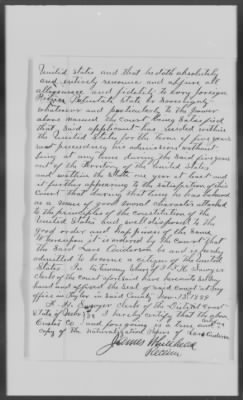 United States and that he doth absolutely
and entirely renounce and abjure all
allegiance and fidelity to every foreign
Prince Potentate State or Sovereignty
whatever and particularly to the power
above named the court being satisfied
that said applicant has resided within
the United States for the term of five years
next preceeding his admission without
being at any time during the said five years
out of the territory of the United States
and within the State one year at least and
it further appearing to the satisfaction of this
Court that during that time he has behaved
as a man of good moral character attached
to the principles of the constitution of the
United States and well disposed to the
good order and happiness of the same
Whereupon it is ordered by the court that
the said Lars Anderson be and is hereby
admitted to become a citizen of the United
States In testimony whereof I
clerk of the court aforesaid have hereunto set my
hand and affixed the seal of said court at my
office in Taylor in said County Nov 13 1884
clerk of the District Court
State of Neb I hereby certify that the above
Custer Co and foregoing is a true and
copy of the naturalization papers of Lars Anderson
James Whitehead
Receiver